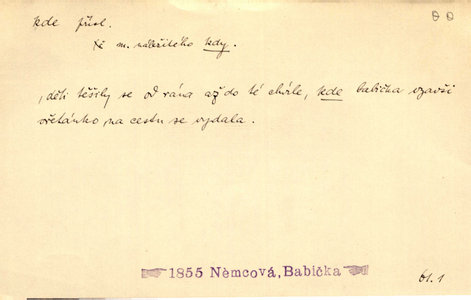 kde přísl.
m. náležitého kdy.
děti těšily se od rána až do té chvíle, kde babička vzavši
vřetánko, na cestu se vydala.
1855 Němcová, Babička
61.1